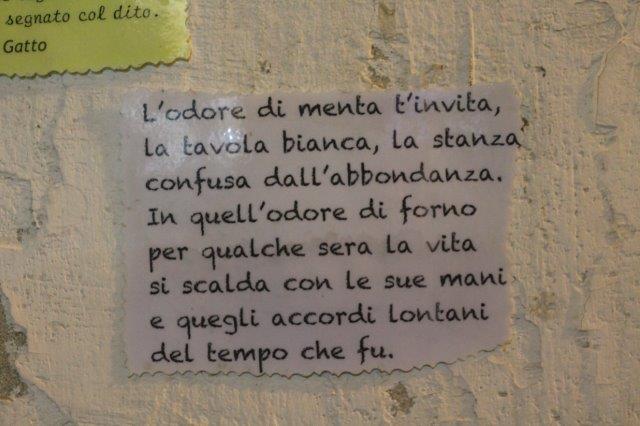 segnato col dito.
Gatto
L'odore di menta t'invita,
la tavola bianca, la stanza
confusa dall'abbondanza.
In quell'odore di forno
per qualche sera la vita
si scalda con le sue mani
e quegli accordi lontani
del tempo che fu.